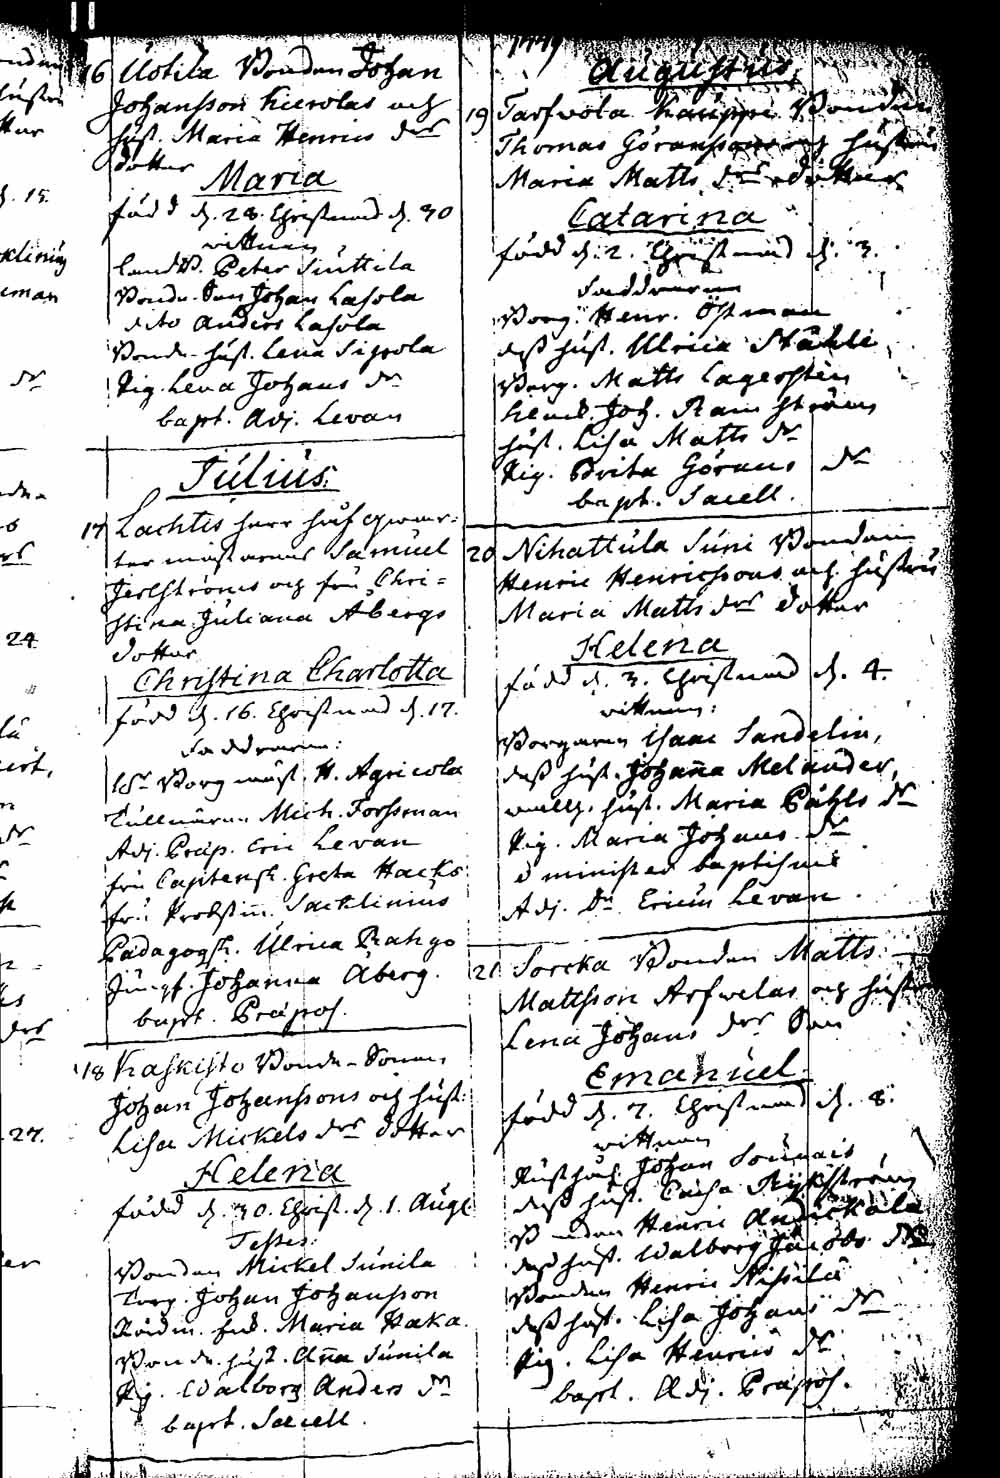 16 Uotila Bonden Johan
Johansson Kierolas och
hust. Maria Henrics drs
dotter
Maria
född d. 28. Christnad d. 30
vittnen
Landtb. Peter Suttila
Bonde-Son Johan Lasola
dito Anders Lasola
Bonde-hust. Lena Sippola
Pig. Lena Johans dr
bapt. Adj. Levan
Julius.
17 Lachtis herr
Samuel
och fru Chri=
stina Juliana Åbergs
dotter
Christina Charlotta
född d. 16. Christnad d. 17.
Faddrarne:
Borgmäst. H. Agricola
Tullnären Mich. Forssman
Adj. Præp. Eric Levan
fru Captensk. Greta Hacks
fru Probstin. Sacklinius
Pædagogsk. Ulrica Rahgo
Jungf. Johanna Åberg.
bapt. Præpos.
18 Kaskisto Bonde-Sonen
Johan Johanssons och hust.
Lisa Mickels drs dotter
Helena
född d. 30. Christ. d. 1. Aug.
Testes:
Bonden Mickel Sunila
Torp. Johan Johansson
Maria Haka.
Bonde-hust. Anna Sunila
Pig. Walborg Anders dr
bapt. Sacell.
Augustus,
19 Tarfvola Kauppi Bonden
Thomas Göranssons och hustrus
Maria Matts drs dotter
Catarina
född d. 2. Christnad d. 3.
Faddrarne
Borg. Henr. Östman
dess hust. Ulrica Ståhle
Borg. Matts Lagersten
Joh. Ramströms
hust. Lisa Matts dr
Pig. Brita Görans dr
bapt. Sacell.
20 Nihattula Suni Bonden
Henric Henricssons och hustrus
Maria Matts drs dotter
Helena
född d. 3. Christnad d. 4.
vittnen:
Borgaren Isaac Sandelin,
dess hust. Johanna Melander,
hust. Maria Påhls dr
Pig. Maria Johans dr
e minister baptismi
Adj. Dn Ericus Levan.
21 Sorcka Bonden Matts
Mattsson Arfwelas och hustrus
Lena Johans drs Son
Emanuel
född d. 7. Christnad d. 8.
vittnen
Johan Sounais
dess hust. Caisa
Bonden Henric Andickala
dess hust. Walborg Jacobs dr
Bonden Henric Nissilä
dess hust. Lisa Johans dr
Pig. Lisa Henrics dr
bapt. Adj. Præpos.